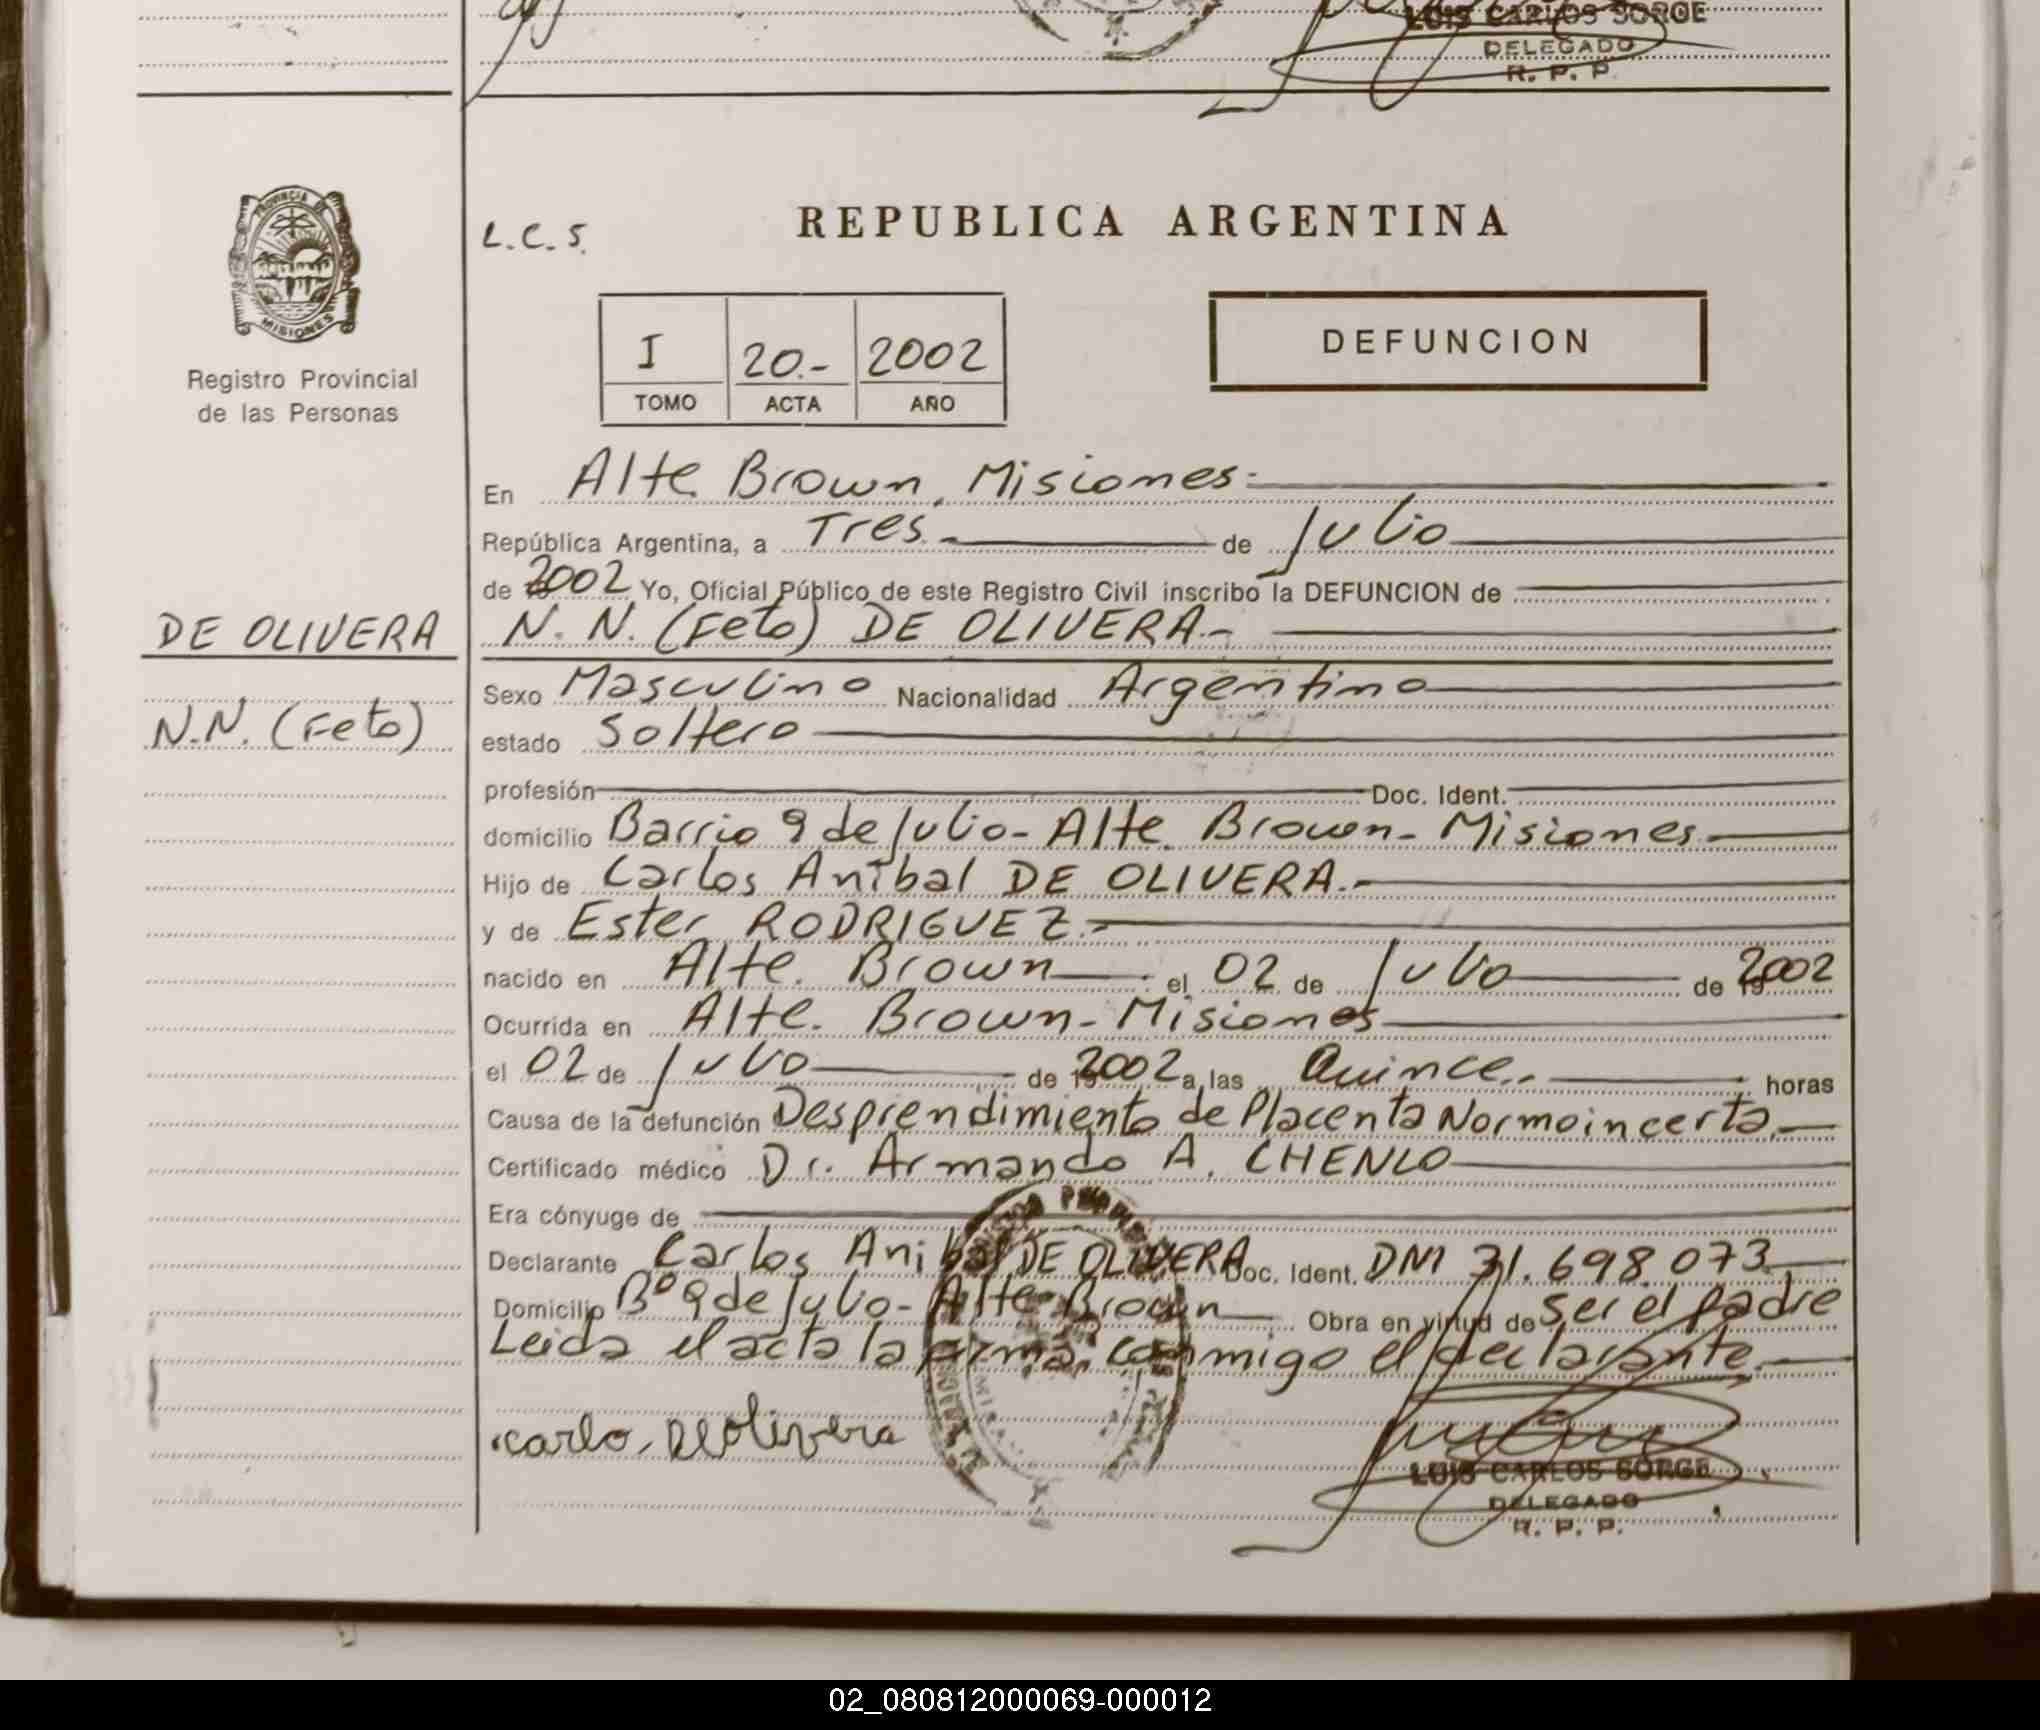 LUIS CARLOS SORGE
DELEGADO
R. P. P.
PROVINCIA DE
MISIONES
Registro Provincial
de las Personas
L.C.S.
REPUBLICA ARGENTINA
I 20.- 2002
TOMO ACTA AÑO
DEFUNCION
En Alte Brown, Misiones.
República Argentina, a Tres.- de Julio
de 2002 Yo, Oficial Público de este Registro Civil inscribo la DEFUNCION de
DE OLIVERA N. N. (Feto) DE OLIVERA.-
Sexo Masculino Nacionalidad Argentino
N.N. (Feto) estado Soltero
profesión Doc. Ident.
domicilio Barrio 9 de Julio- Alte. Brown- Misiones.
Hijo de Carlos Anibal DE OLIVERA.-
y de Ester RODRIGUEZ.-
nacido en Alte. Brown el 02 de Julio de 2002
Ocurrida en Alte. Brown- Misiones
el 02 de Julio de 2002 a las Quince.- horas
Causa de la defunción Desprendimiento de Placenta Normoincerta.
Certificado médico Dr. Armando A. CHENLO
Era cónyuge de
Declarante Carlos Anibal DE OLIVERA Doc. Ident. DNI 31.698.073
Domicilio Bº 9 de Julio- Alte Brown Obra en virtud de ser el padre
Leida el acta la firma conmigo el declarante.
carlo, DeOlivera
LUIS CARLOS SORGE
DELEGADO
R. P. P.
02_080812000069-000012